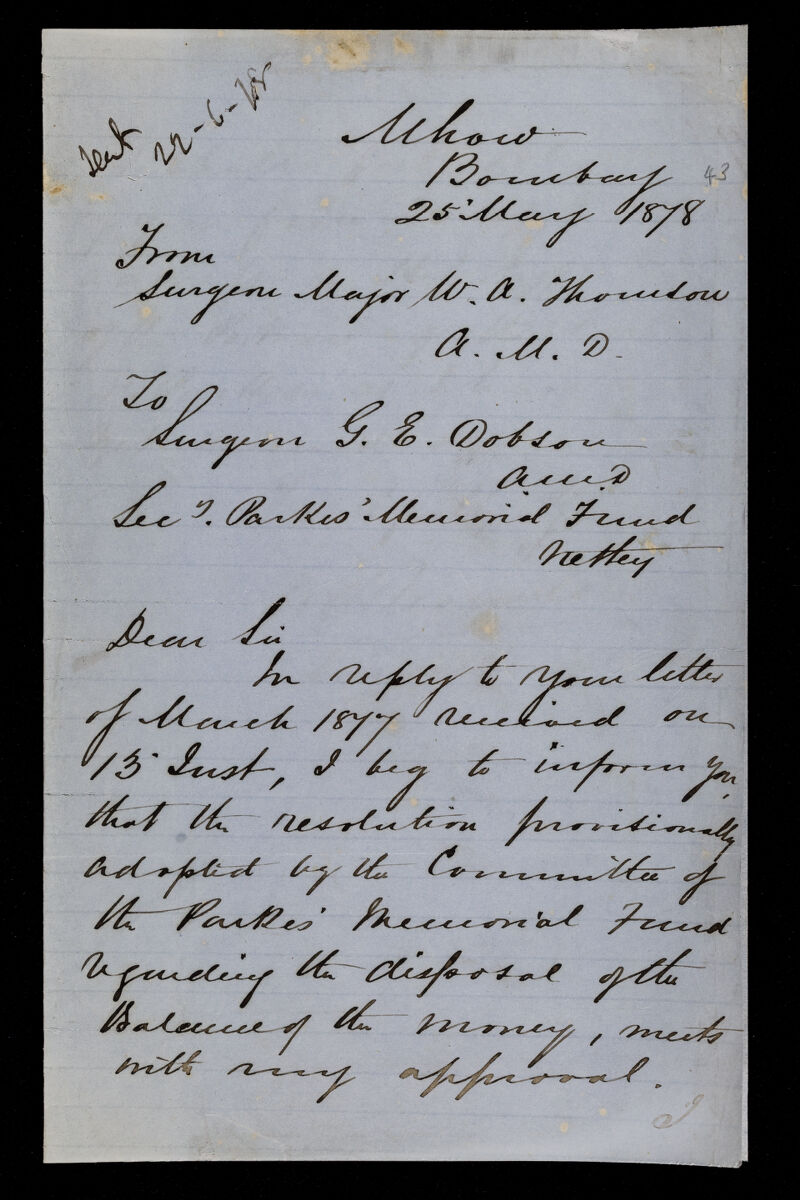 Sent
22-6-78
Mhow
Bombay
43
25 May 1878
From
Surgeon Major W. A. Thomson
A. M. D.
To
Surgeon G. E. Dobson
A.M.D
Secy. Parkes' Memorial Fund
Netley
Dear Sir
In reply to your letter
of March 1877 received on
13 Inst, I beg to inform you,
that the resolution provisionally
adopted by the Committee of
the Parkes' Memorial Fund
regarding the disposal of the
Balance of the money, meets
with my approval.
I